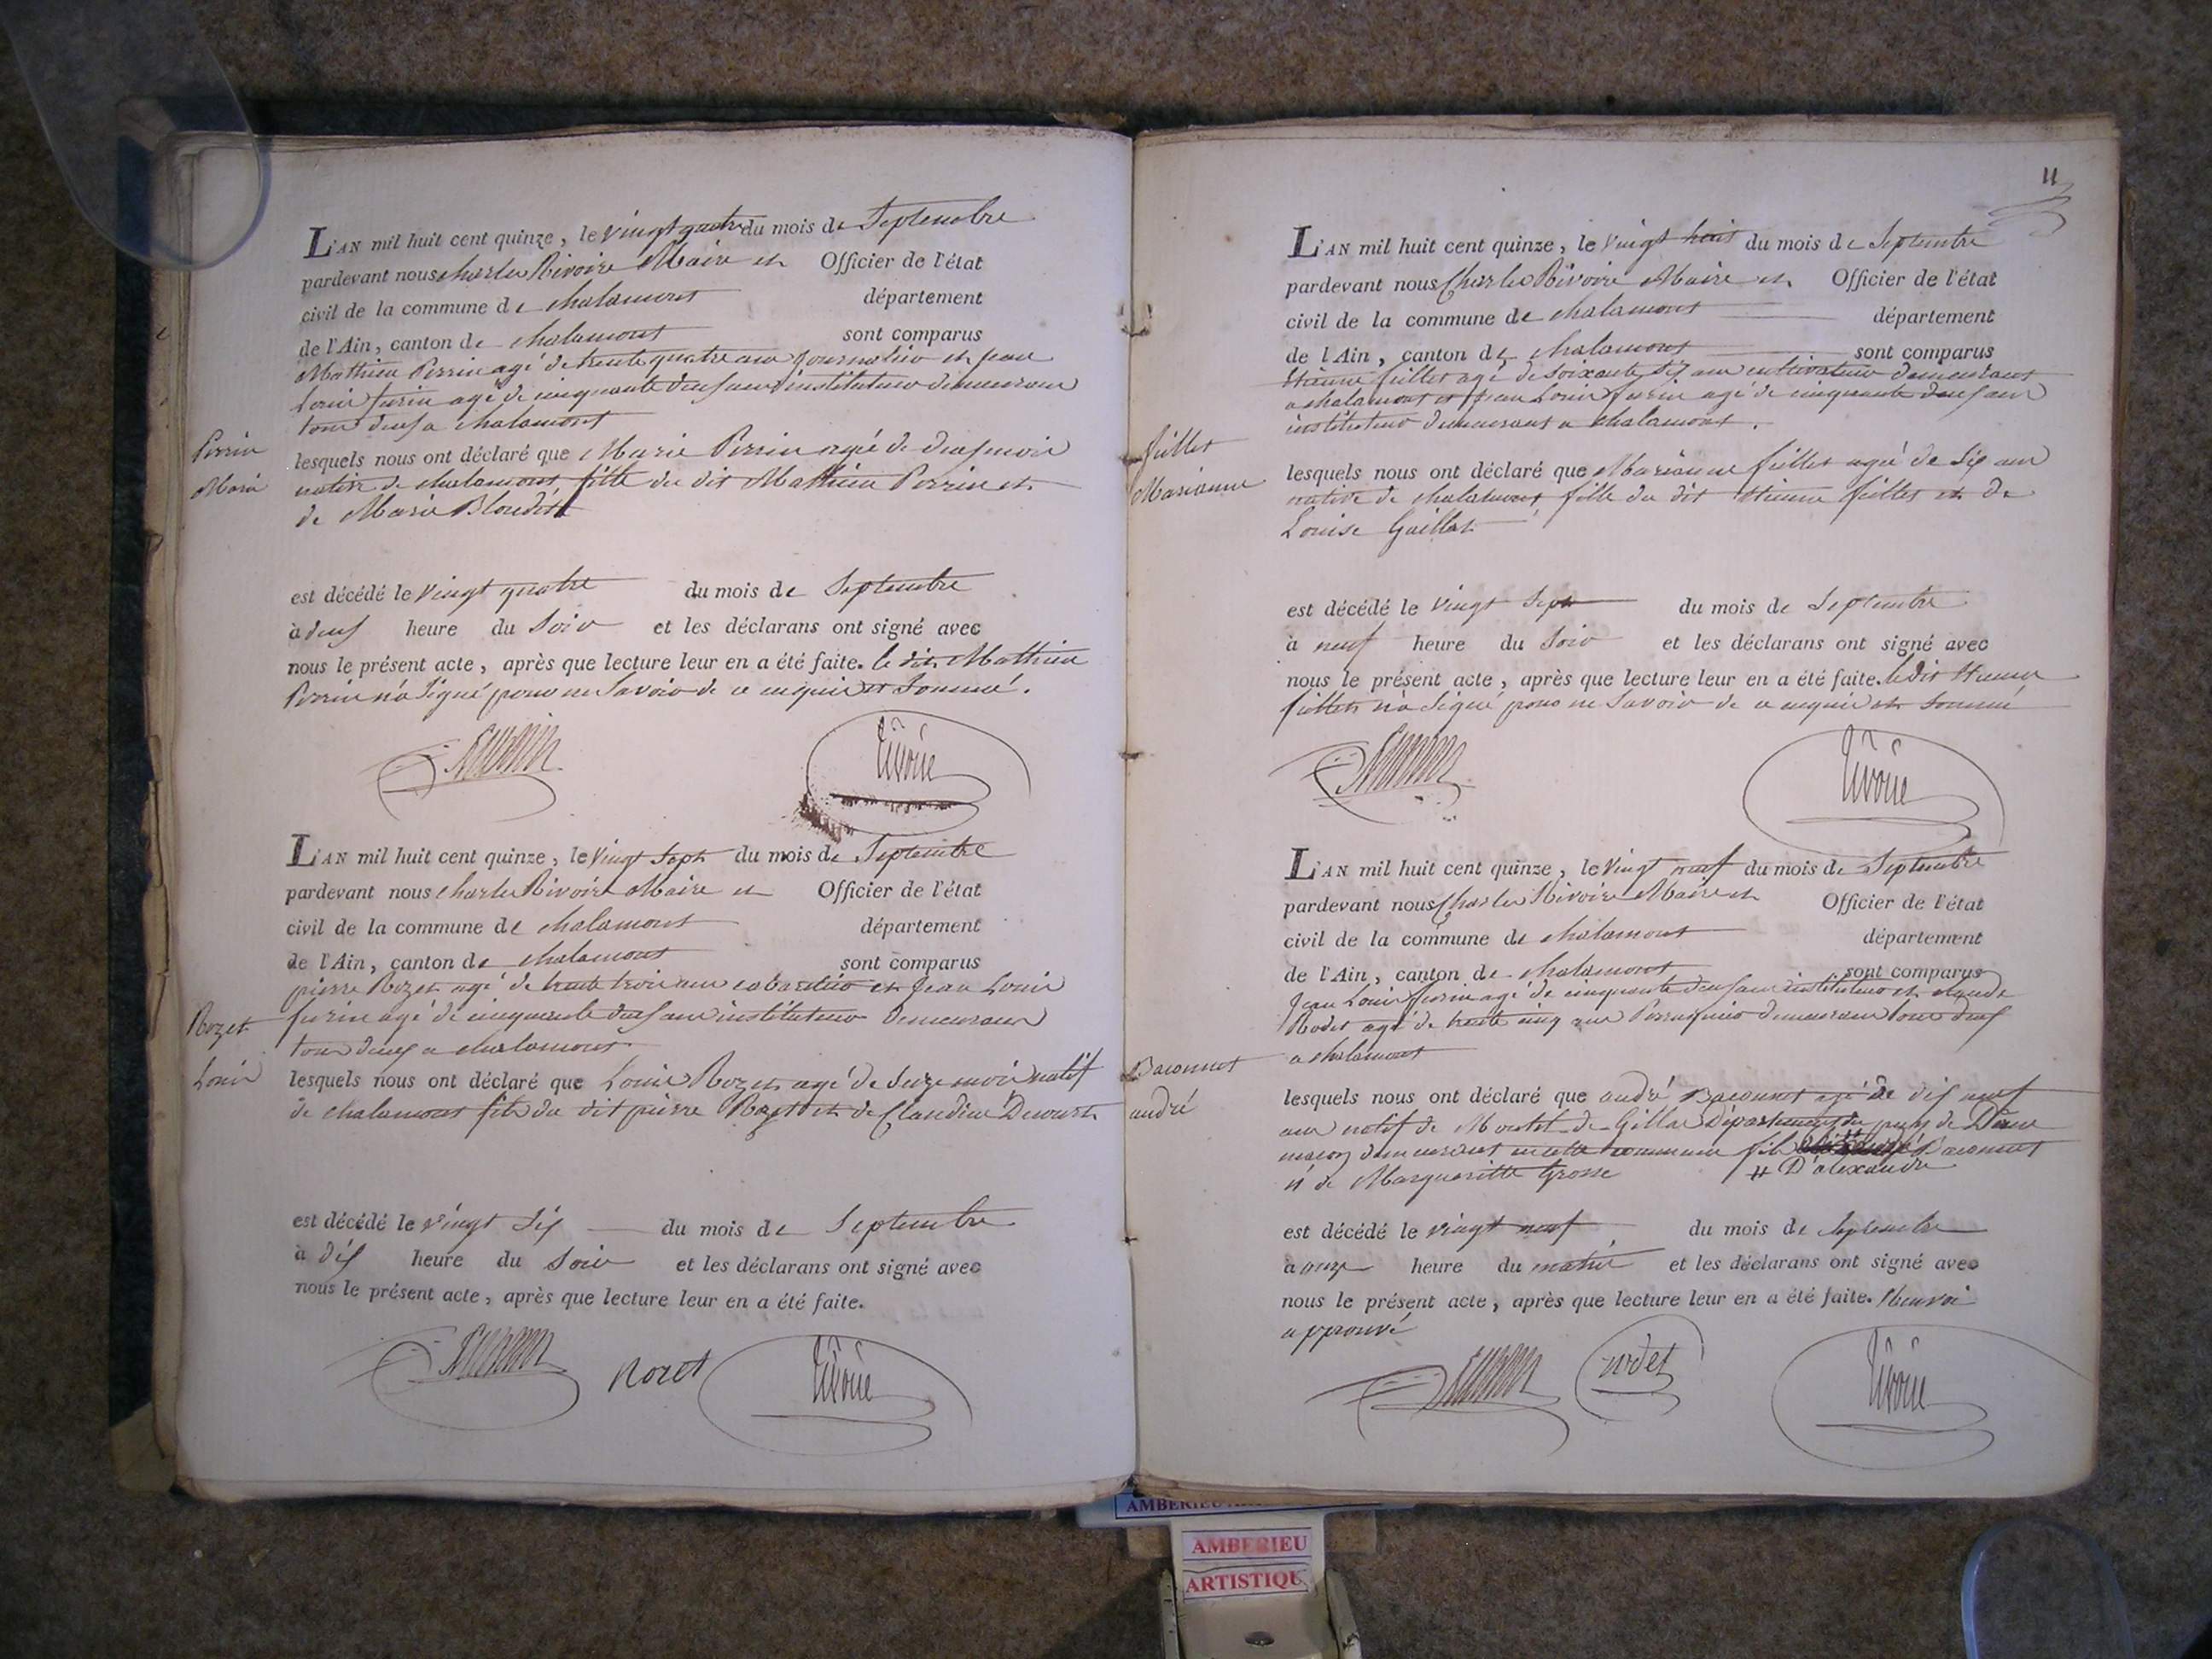 L'AN mil huit cent quinze, le vingt quatre du mois de Septembre
pardevant nous charles Rivoire Maire et Officier de l'état
civil de la commune de chalamont département
de l'Ain, canton de chalamont sont comparus
Mathieu Perrin agé de trente quatre ans journalier et jean
Louis furin agé de cinquante deux ans instituteur demeurans
tous deux a chalamont
Perrin
Marie
lesquels nous ont déclaré que Marie Perrin agée de deux mois
native de chalamont fille du dit Mathieu Perrin et
de Marie Blondit
est décédé le vingt quatre du mois de Septembre
à deux heure du Soir et les déclarans ont signé avec
nous le présent acte, après que lecture leur en a été faite. le dit Mathieu
Perrin n'a Signé pour ne Savoir de ce enquis et Sommé.
Rivoire
L'AN mil huit cent quinze, le vingt Sept du mois de Septembre
pardevant nous charles Rivoire Maire et Officier de l'état
civil de la commune de chalamont département
de l'Ain, canton de chalamont sont comparus
pierre Rozet agé de trente trois ans cabaretier et Jean Louis
furin agé de cinquante deux ans instituteur demeurans
tous deux a chalamont
Rozet
Louis
lesquels nous ont déclaré que Louis Rozet agé de Seize mois natif
de chalamont fils du dit pierre Rozet et de Claudine
est décédé le vingt Six du mois de Septembre
à dix heure du Soir et les déclarans ont signé avec
nous le présent acte, après que lecture leur en a été faite.
Rozet Rivoire
11
L'AN mil huit cent quinze, le vingt huit du mois de Septembre
pardevant nous Charles Rivoire Maire et Officier de l'état
civil de la commune de chalamont département
de l'Ain, canton de chalamont sont comparus
Etienne fillet agé de Soixante dix ans cultivateur demeurant
a chalamont et jean Louis furin agé de cinquante deux ans
instituteur demeurant a chalamont.
fillet
Marianne
lesquels nous ont déclaré que Marianne fillet agée de Six ans
native de chalamont, fille du dit Etienne fillet et de
Louise Gaillat
est décédé le vingt Sept du mois de Septembre
à neuf heure du Soir et les déclarans ont signé avec
nous le présent acte, après que lecture leur en a été faite. le dit Etienne
fillet n'a Signé pour ne Savoir de ce enquis et Sommé
Rivoire
L'AN mil huit cent quinze, le vingt neuf du mois de Septembre
pardevant nous Charles Rivoire Maire et Officier de l'état
civil de la commune de chalamont département
de l'Ain, canton de chalamont sont comparus
Jean Louis furin agé de cinquante deux ans instituteur et claude
Rodet agé de trente cinq ans Perruquier demeurans tous deux
a chalamont
Baconnet
andré
lesquels nous ont déclaré que andré Baconnet agé de dix neuf
ans natif de Département du puy de Dome
maçon demeurant en cette commune fils Baconnet
et de Margueritte Grosse # D'alexandre
est décédé le vingt neuf du mois de Septembre
à onze heure du matin et les déclarans ont signé avec
nous le présent acte, après que lecture leur en a été faite. Renvoi
approuvé
rodet Rivoire
AMBERIEU
AMBERIEU
ARTISTIQU